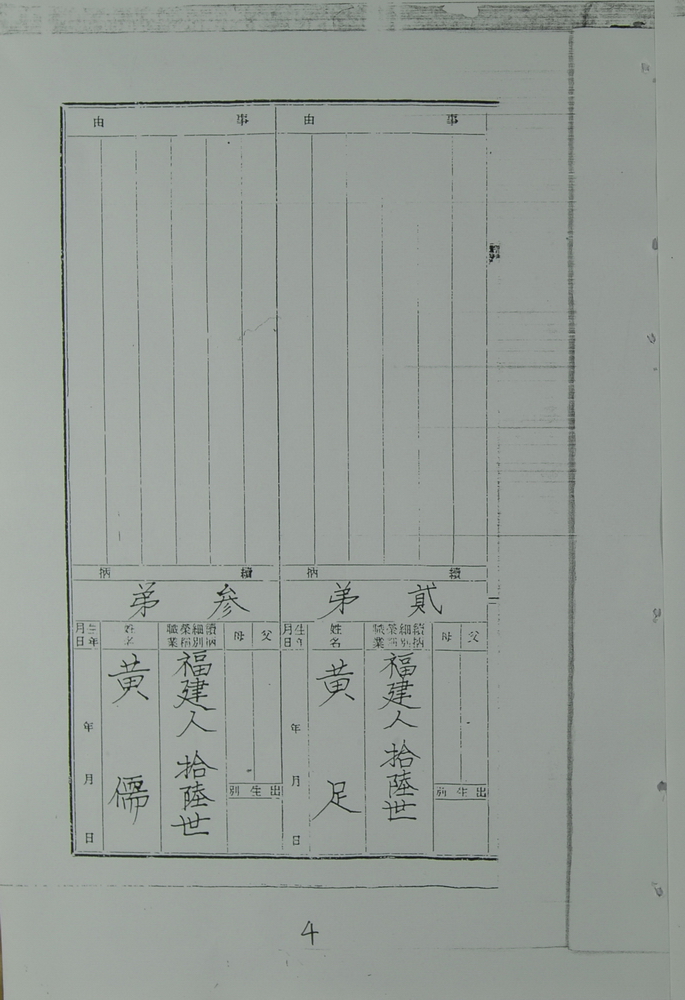 事由
續柄
貳弟
父
母
出生別
續柄細別榮稱職業
福建人 拾陸世
姓名
黃足
生年月日
年月日
事由
續柄
參弟
父
母
出生別
續柄細別榮稱職業
福建人 拾陸世
姓名
黃儒
生年月日
年月日
4